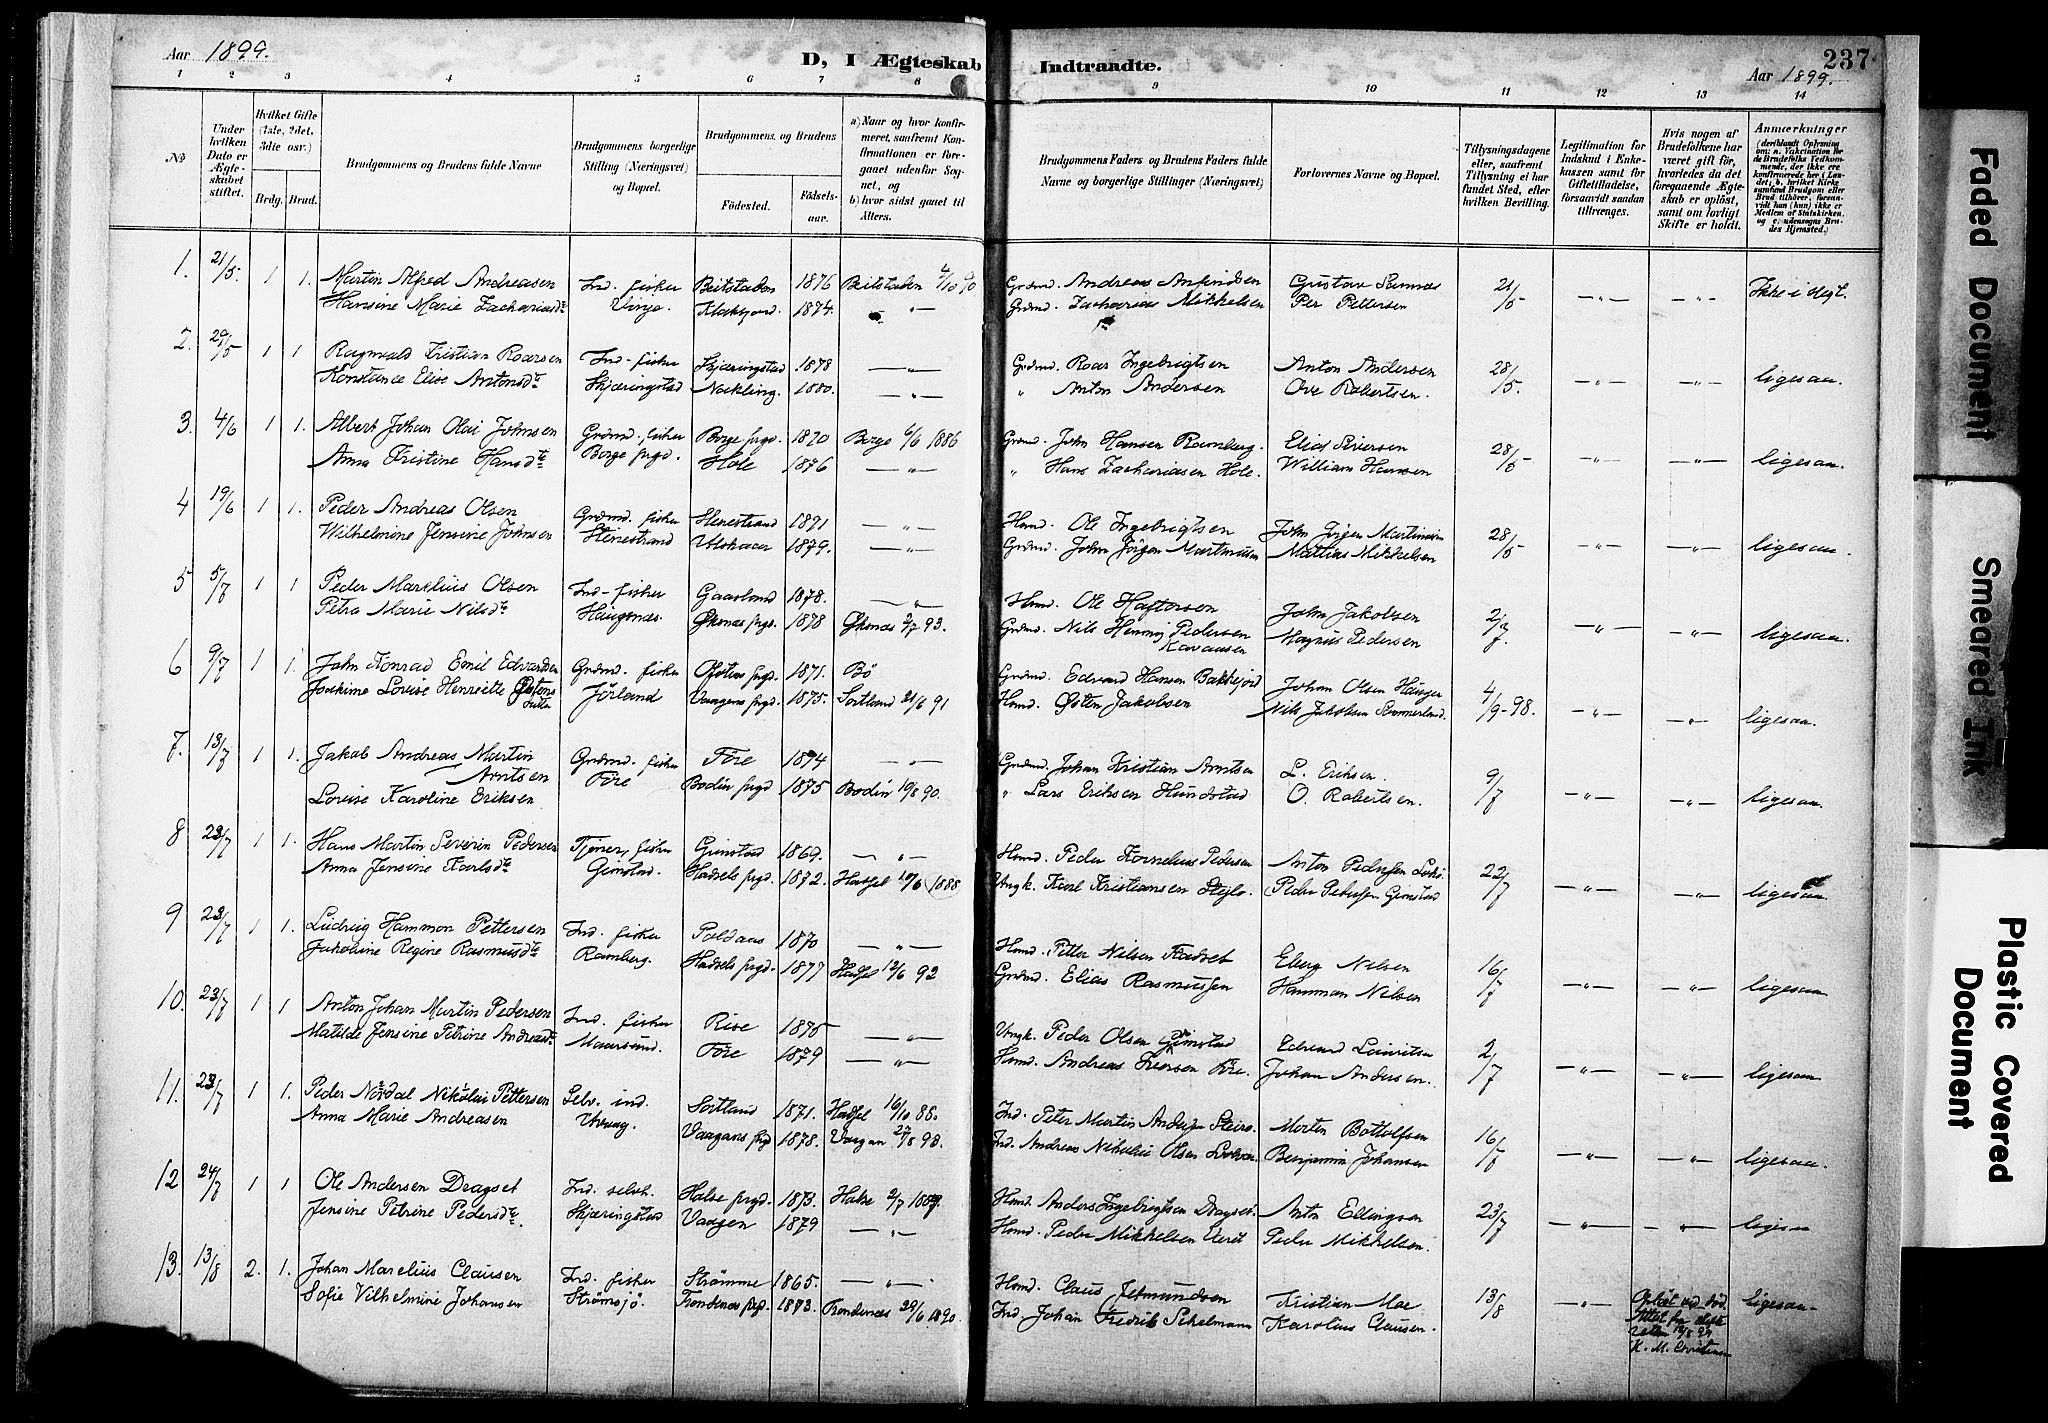 Aar 1899.
D, I Ægteskab Indtraadte.
237
Aar 1899.
1 2 3 4 5 6 7 8 9 10 11 12 13 14
No
Under hvilken Dato er Ægteskabet stiftet.
Hvilket Gifte (1ste, 2det, 3die osv.)
Brdg. Brud.
Brudgommens og Brudens fulde Navne
Brudgommens borgerlige Stilling (Næringsvei) og Bopæl.
Brudgommens og Brudens
Fødested.
Fødselsaar.
a) Naar og hvor konfirmeret, saafremt Konfirmationen er foregaaet udenfor Sognet, og
b) hvor sidst gaaet til Alters.
Brudgommens Faders og Brudens Faders fulde Navne og borgerlige Stillinger (Næringsvei)
Forlovernes Navne og Bopæl.
Tillysningsdagene eller, saafremt Tillysning ei har fundet Sted, efter hvilken Bevilling.
Legitimation for Indskud i Enkekassen samt for Giftetilladelse, forsaavidt saadan tiltrænges.
Hvis nogen af Brudefolkene har været gift før, hvorledes da det foregaaende Ægteskab er opløst, samt om lovligt Skifte er holdt.
Anmærkninger (deriblandt Oplysning om: a. Vakcination for de Brudefolks Vedkommende, der ikke ere konfirmerede her i Landet; b. hvilket Kirkesamfund Brudgom eller Brud tilhører, forsaavidt han (hun) ikke er Medlem af Statskirken, og c. udensogns Brudes Hjemsted.)
1. 21/5. 1 1. Martin Alfred Andreasen Ind. fisker Beitstaden 1876 Beitstaden 4/10 90 Grdmd. Andreas Anfindsen Gustav Sunnas 21/5 —„— —„— Ikke i slegt.
Hansine Marie Zachariasdtr Vinje. Klaksjord. 1874. —„— Grdmd. Zacharias Mikkelsen Per Pettersen
2. 29/5 1 1 Ragnvald Kristian Roarsen Ind. fisker Skjæringstad 1878 —„— Grdmd. Roar Ingebrigtsen Anton Andersen 28/5. —„— —„— ligesaa.
Konstance Elise Antonsdtr Skjæringstad Nøkling. 1880. —„— „ Anton Andersen Ove Robertsen.
3. 4/6 1 1. Albert Johan Olai Johnsen Grdmd. fisker Borge prgd. 1870 Borge 6/6 1886 Grdmd. John Hansen Ramberg. Elias Siversen 28/5 —„— —„— ligesaa.
Anna Kristine Hansdtr Borge prgd. Hole 1876 —„— „ Hans Zachariasen Hole. William Hansen
4 19/6 1 1. Peder Andreas Olsen Grdmd. fisker Stenestrand 1871 —„— Hsmd. Ole Ingebrigtsen John Jørgen Martinusen 28/5 —„— —„— ligesaa.
Wilhelmine Jensine Johnsen Stenestrand 1879. —„— Grdmd. John Jörgen Martinusen Mathias Mikkelsen
5 5/7 1 1 Peder Marklius Olsen Ind. fisker Gaasland 1878. —„— Hsmd. Ole Haftorsen John Jakobsen 2/7. —„— —„— ligesaa.
Petra Marie Nilsdtr Haugsnes. Øksnes prgd. 1878 Øksnes 2/7 93. Grdmd. Nils Henning Pedersen Magnus Pedersen
6 9/7 1 1. John Konrad Emil Edvardsen Grdmd. fisker Ofoten prgd. 1871. Bø Grdmd. Edvard Hansen Bakkejord Johan Olsen Haugen 4/9-98. —„— —„— ligesaa.
Joakime Lovise Henriette Østensdatter Jörland Vaagens prgd. 1875. Sortland 21/6 91 Hsmd. Østen Jakobsen Nils Jakobsen Sommerland.
7. 13/7 1 1. Jakob Andreas Martin Arntsen Grdmd. fisker Före 1874 —„— Grdmd. Johan Kristian Arntsen L. Eriksen. 9/7 —„— —„— ligesaa.
Lovise Karoline Eriksen Före Bodin prgd 1875 Bodin 19/8 90. „ Lars Eriksen Hundstad O. Robertsen.
8 23/7 1 1. Hans Martin Severin Pedersen Tjener, fisker Gimstad 1869. —„— Hsmd. Peder Kornelius Pedersen Anton Pedersen 22/7 —„— —„— ligesaa.
Anna Jensine Karlsdtr Gimstad. Hadsels prgd. 1872. Hadsel 19/6 1888 Ungk. Karl Kristiansen Peder Pedersen Gimstad
9 23/7 1 1. Ludvig Hammon Pettersen Ind. fisker Poldaas 1870 —„— Hsmd. Petter Nilsen Eberg Nilsen 16/7 —„— —„— ligesaa.
Jakobine Regine Rasmusdtr Ramberg. Hadsels prgd. 1877 Hadsel 12/6 92 Grdmd. Elias Rasmussen Hamman Nilsen
10. 23/7 1 1 Anton Johan Martin Pedersen Ind. fisker Rise 1875 —„— Ungk. Peder Olsen Gimstad Edvard Lauritsen 2/7 —„— —„— ligesaa.
Matilde Jensine Petrine Andreasdtr Maarsund. Före 1879 —„— Hsmd. Andreas Iversen Före. Johan Andersen.
11. 23/7 1 1. Peder Nordal Nikolai Pettersen Selv. ind. Sortland 1871. Hadsel 16/10 88. Ind. Peter Martin Morten Bottolfsen 16/7 —„— —„— ligesaa.
Anna Marie Andreasen Vaagans prgd 1878. Vaagan 27/8 93. Ind. Andreas Nikolai Olsen Benjamin Johansen
12 24/7 1 1 Ole Andersen Dragset Ind. selvh. Halse prgd. 1873. Halse 2/7 1889. Hsmd. Anders Ingebrigtsen Dragset. Anton Ellingsen 23/7 —„— „ ligesaa
Jensine Petrine Pedersdtr. Skjæringstad Vaagen 1879 —„— Hsmd. Peder Mikkelsen Peder Mikkelsen.
13. 13/8 2. 1. Johan Marelius Clausen Ind. fisker Strömme 1865. —„— Hsmd. Claus Jetmundsen Kristian Moe 13/8 —„— Opløst ved død. ligesaa.
Sofie Vilhelmine Johansen Strömsjö. Trondenæs prgd. 1873. Trondenæs 29/6 1890. Ind. Johan Fredrik Schelmann Karolius Clausen. Attest fra
Faded Document
Smeared Ink
Plastic Covered Document